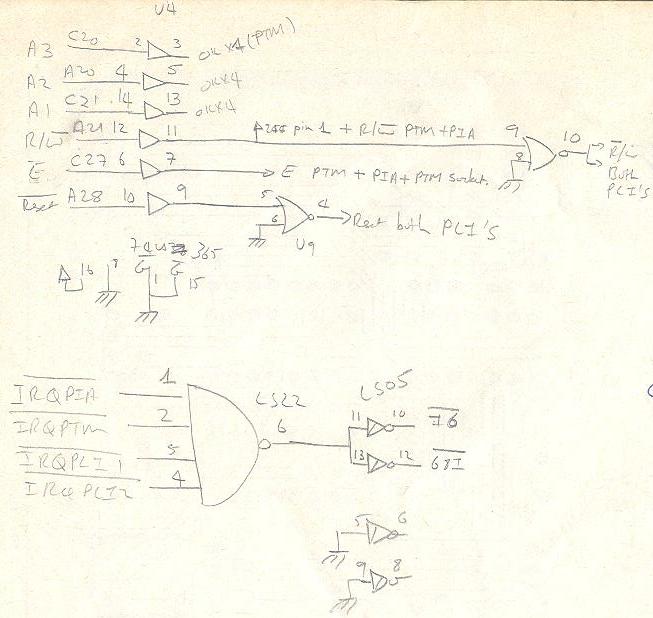 U4
A3 C20 2 3 OK x4 (PTM)
A2 A20 4 5 OK x4
A1 C21 14 13 OK x4
R/W̅ A21 12 11 pin 1 + R/W̅ PTM + PIA 9 8 10 R̅/W
Both
PLI'S
E̅ C27 6 7 E PTM + PIA + PTM socket.
R̅e̅s̅e̅t̅ A28 10 9 5 6 4 Reset both PLI'S
U9
365
16 8 G̅ G̅
1 15
I̅R̅Q̅P̅I̅A̅ 1
I̅R̅Q̅P̅T̅M̅ 2
I̅R̅Q̅P̅L̅I̅1̅ 5
I̅R̅Q̅P̅L̅I̅2̅ 4
LS22 6
LS05
11 10 I̅6̅
13 12 6̅8̅I̅
5 6
9 8